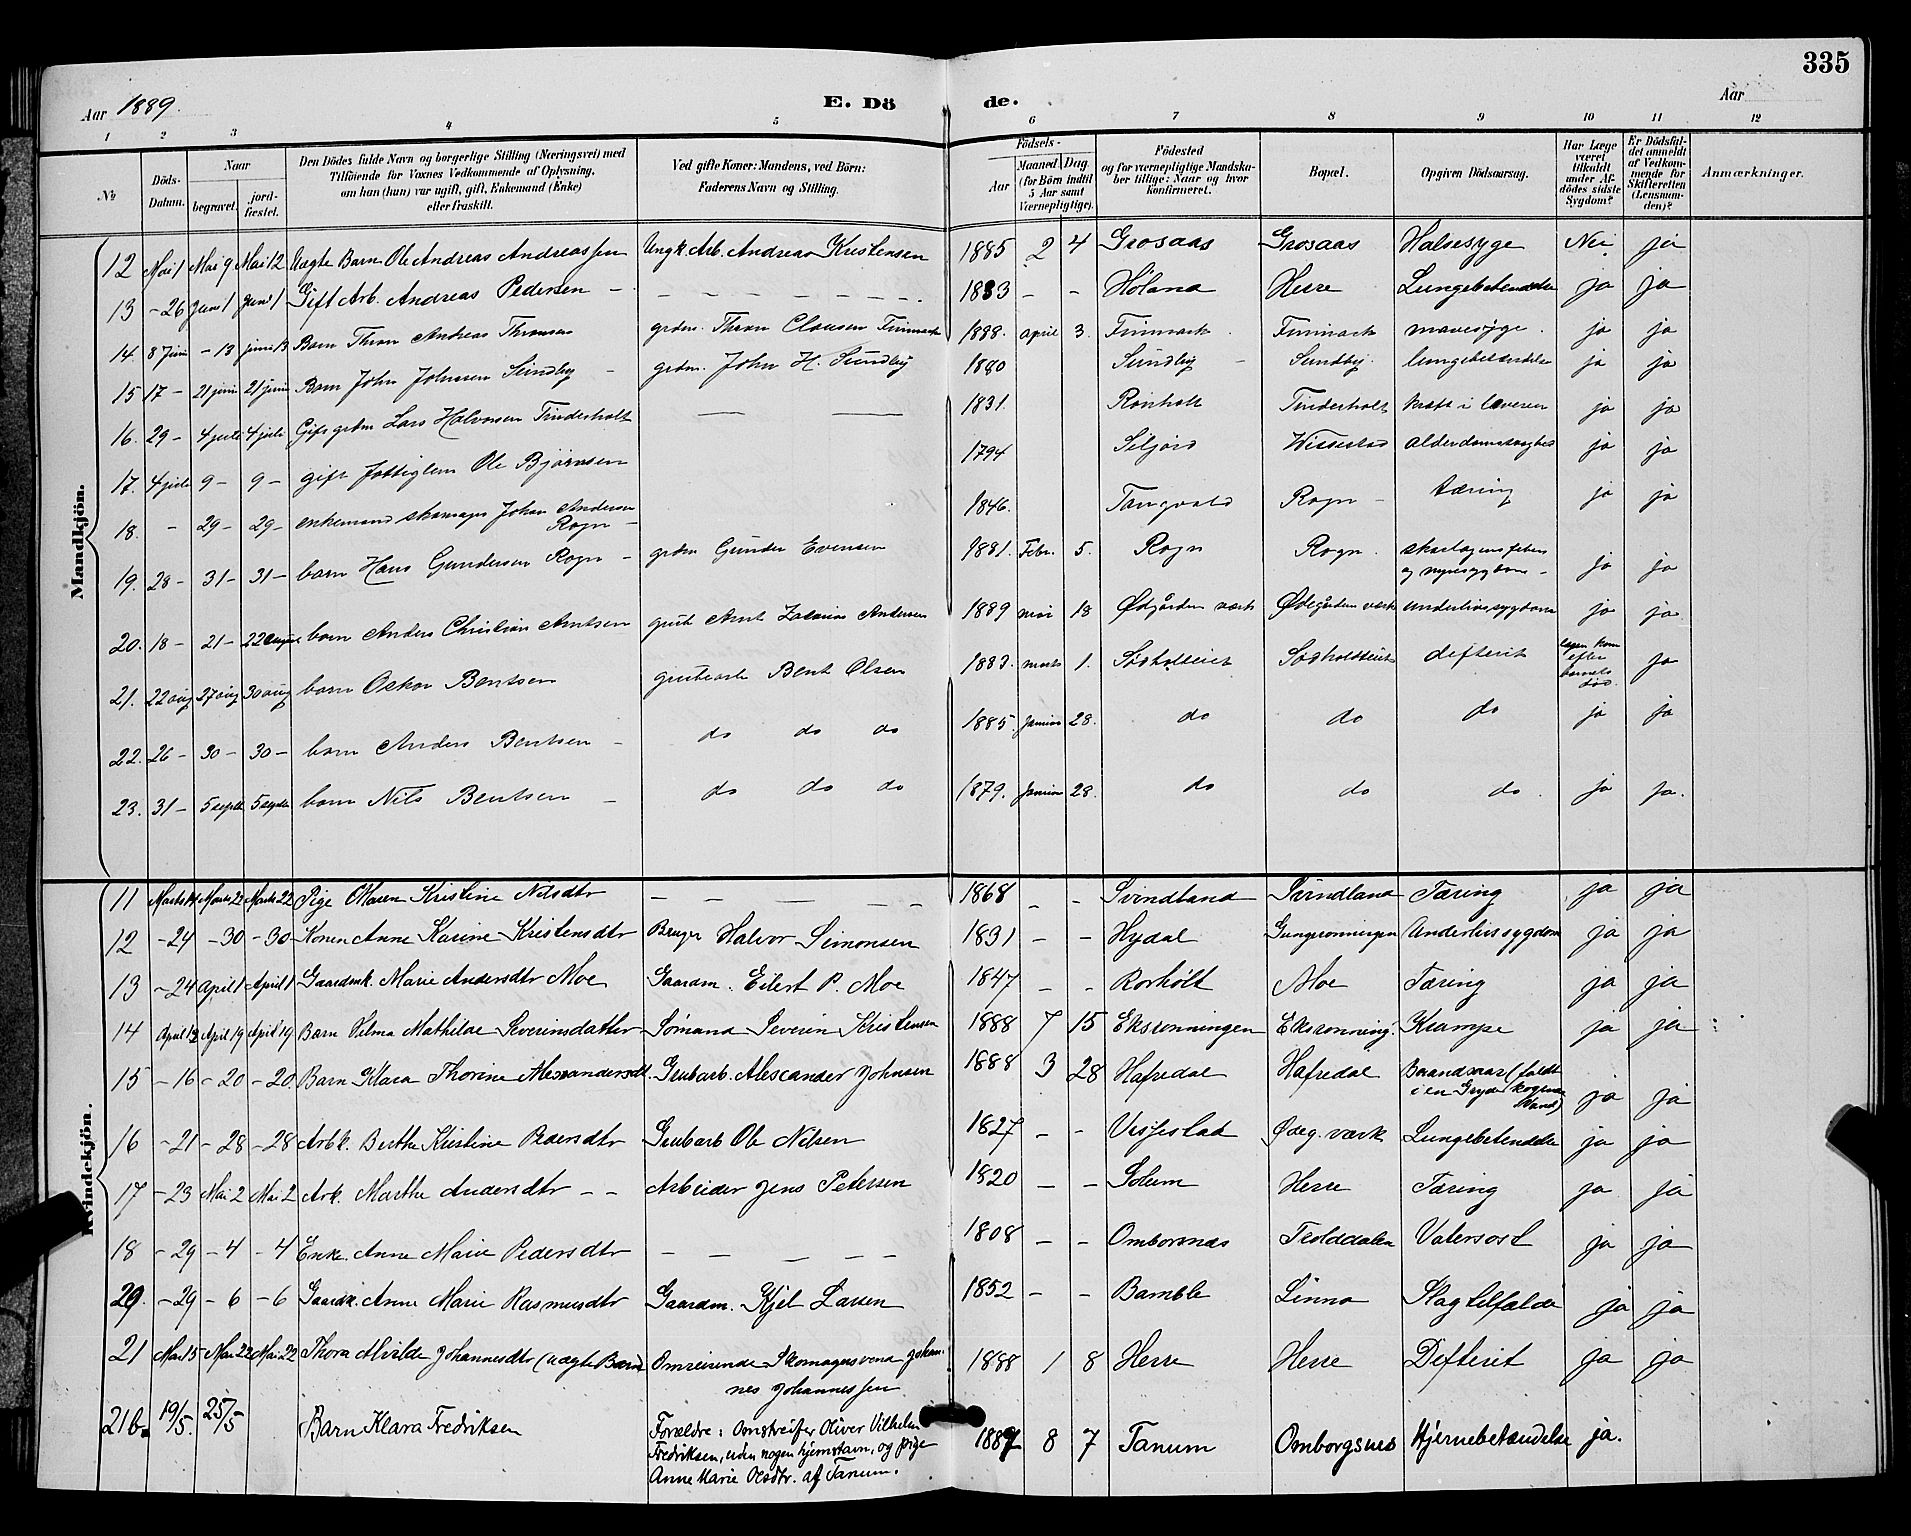 335
Aar 1889. E. Dö de. Aar
1 2 3 4 5 6 7 8 9 10 11 12
№ Döds-Datum. Naar begravet. jord-fæstet. Den Dödes fulde Navn og borgerlige Stilling (Næringsvei) med Tilföiende for Voxnes Vedkommende af Oplysning, om han (hun) var ugift, gift, Enkemand (Enke) eller fraskilt. Ved gifte Koner: Mandens, ved Börn: Faderens Navn og Stilling. Födsels- Aar Maaned Dag. (for Börn indtil 5 Aar samt Værnepligtige). Födested og for værnepligtige Mandskaber tillige: Naar og hvor Konfirmeret. Bopæl. Opgiven Dödsaarsag. Har Læge været tilkaldt under Afdödes sidste Sygdom? Er Dödsfaldet anmeldt af Vedkommende for Skifteretten (Lensmanden)? Anmærkninger.
Mandkjön.
12 Mai 1 Mai 9 Mai 12 Uægte Barn Ole Andreas Andreassen Ungk. Arb. Andreas Kristensen 1885 2 4 Grosaas Grosaas Halsesyge Nei ja
13 - 26 Juni 1 Juni 1 Gift Arb. Andreas Pedersen - - - - - - 1833 - - Höland Herre Lungebetændelse ja ja
14. 8 Juni - 13 juni 13 Barn Thron Andreas Thronsen grdm. Thron Clausen Finmark 1888. april 3. Finmark Finmark mavesyge. ja ja
15 17 - 21 juni 21 juni Barn John Johnsen Sundby - grdm. John H. Sundby 1880 Sundby - Sundby. lungebetændelse ja ja
16. 29 - 4 juli 4 juli Gift grdm Lars Halvorsen Tinderholt 1831. Rönholt Tinderholt kræft i leveren ja ja
17. 4 juli 9 - 9 - gift fattiglem Ole Björnsen 1794 Siljord Wissestad alderdomssvaghed ja ja
18. - 29 - 29 - enkemand skomager Johan Andersen Rogn - 1846. Tangvald Rogn - tæring ja ja
19. 28 - 31 - 31 - barn Hans Gundersen Rogn - grdm Gunder Evensen 1881. Febr. 5. Rogn Rogn. skarlagensfeber og nyresygdom - ja ja
20. 18 - 21 - 22 august barn Anders Christian Arntsen grub Arnt Zakarias Andersen 1889 mai 18 Ødgården værk Ødegården værk underlivssygdom ja ja
21. 22 aug 27 aug 30 aug barn Oskar Bentsen grubearb Bent Olsen 1883. marts 1. Stokholteiet Stokholteiet difterit lægen kom efter barnets död. ja
22. 26 - 30 - 30 - barn Anders Bentsen - do do do 1885. Januar 28. do do do ja ja
23. 31 - 5 septb 5 septb barn Nils Bentsen - do do do 1879. Januar 28. do do do. ja ja.
Kvindekjön.
11 Marts 14 Marts 22 Marts 22 Pige Maren Kristine Nilsdtr - - - - - 1868 - - Svindland Svindland Tæring ja ja
12 - 24 - 30 - 30 Konen Anne Karine Kristensdtr Bruger Halvor Simonsen 1831 - - Hydal Gungrønningen Underlivssygdom ja ja
13 - 24 April 1 April 1 Gaardmk. Marie Andersdtr Moe Gaardm. Eilert P. Moe 1847 - - Rorholt Moe Tæring ja ja
14 April 12 April 19 April 19 Barn Velma Mathilde Severinsdatter Sømand Severin Kristensen 1888 7 15 Eksrønningen Eksrønning. Krampe ja ja
15 - 16 - 20 - 20 Barn Klara Thorine Alexandersdt. Grubarb. Alexander Johnsen 1888 3 28 Hafredal Hafredal Brandsaar (faldt i en Gryde kogende Vand) ja ja
16 - 21 - 28 - 28 Arbk. Berthe Kirstine Pedersdtr Grubarb Ole Nilsen 1827 - - Vissestad Ødeg. værk Lungebetændelse ja ja
17 - 23 Mai 2 Mai 2 Ark. Marthe Andersdtr - - Arbeider Jens Petersen 1820 - - Solum Herre Tæring ja ja
18 - 29 - 4 - 4 Enke. Anne Marie Pedersdtr - - - - - 1808 - - Omborsnes Trolddalen Vatersot ja ja
20. - 29 - 6 - 6 Gaardk. Anne Marie Rasmusdtr Gaardm. Kjel Larsen 1852 - - Bamble Linna Slagtilfælde ja ja
21 Mai 15 Mai 22 Mai 22 Thora Alvilde Johannesdtr (uægte Barn) Omreisende Skomagersvend Johannes Johannessen 1888 1 8 Herre Herre Difterit ja ja
21b. 19/5. 25/5 Barn Klara Fredriksen Forældre: Omstreifer Oliver Vilhelm Fredriksen, uden nogen hjemstavn, og pige Anne Marie Olsdtr. af Tanum. 1887 8 7 Tanum Omborgsnes Hjernebetændelse ja.